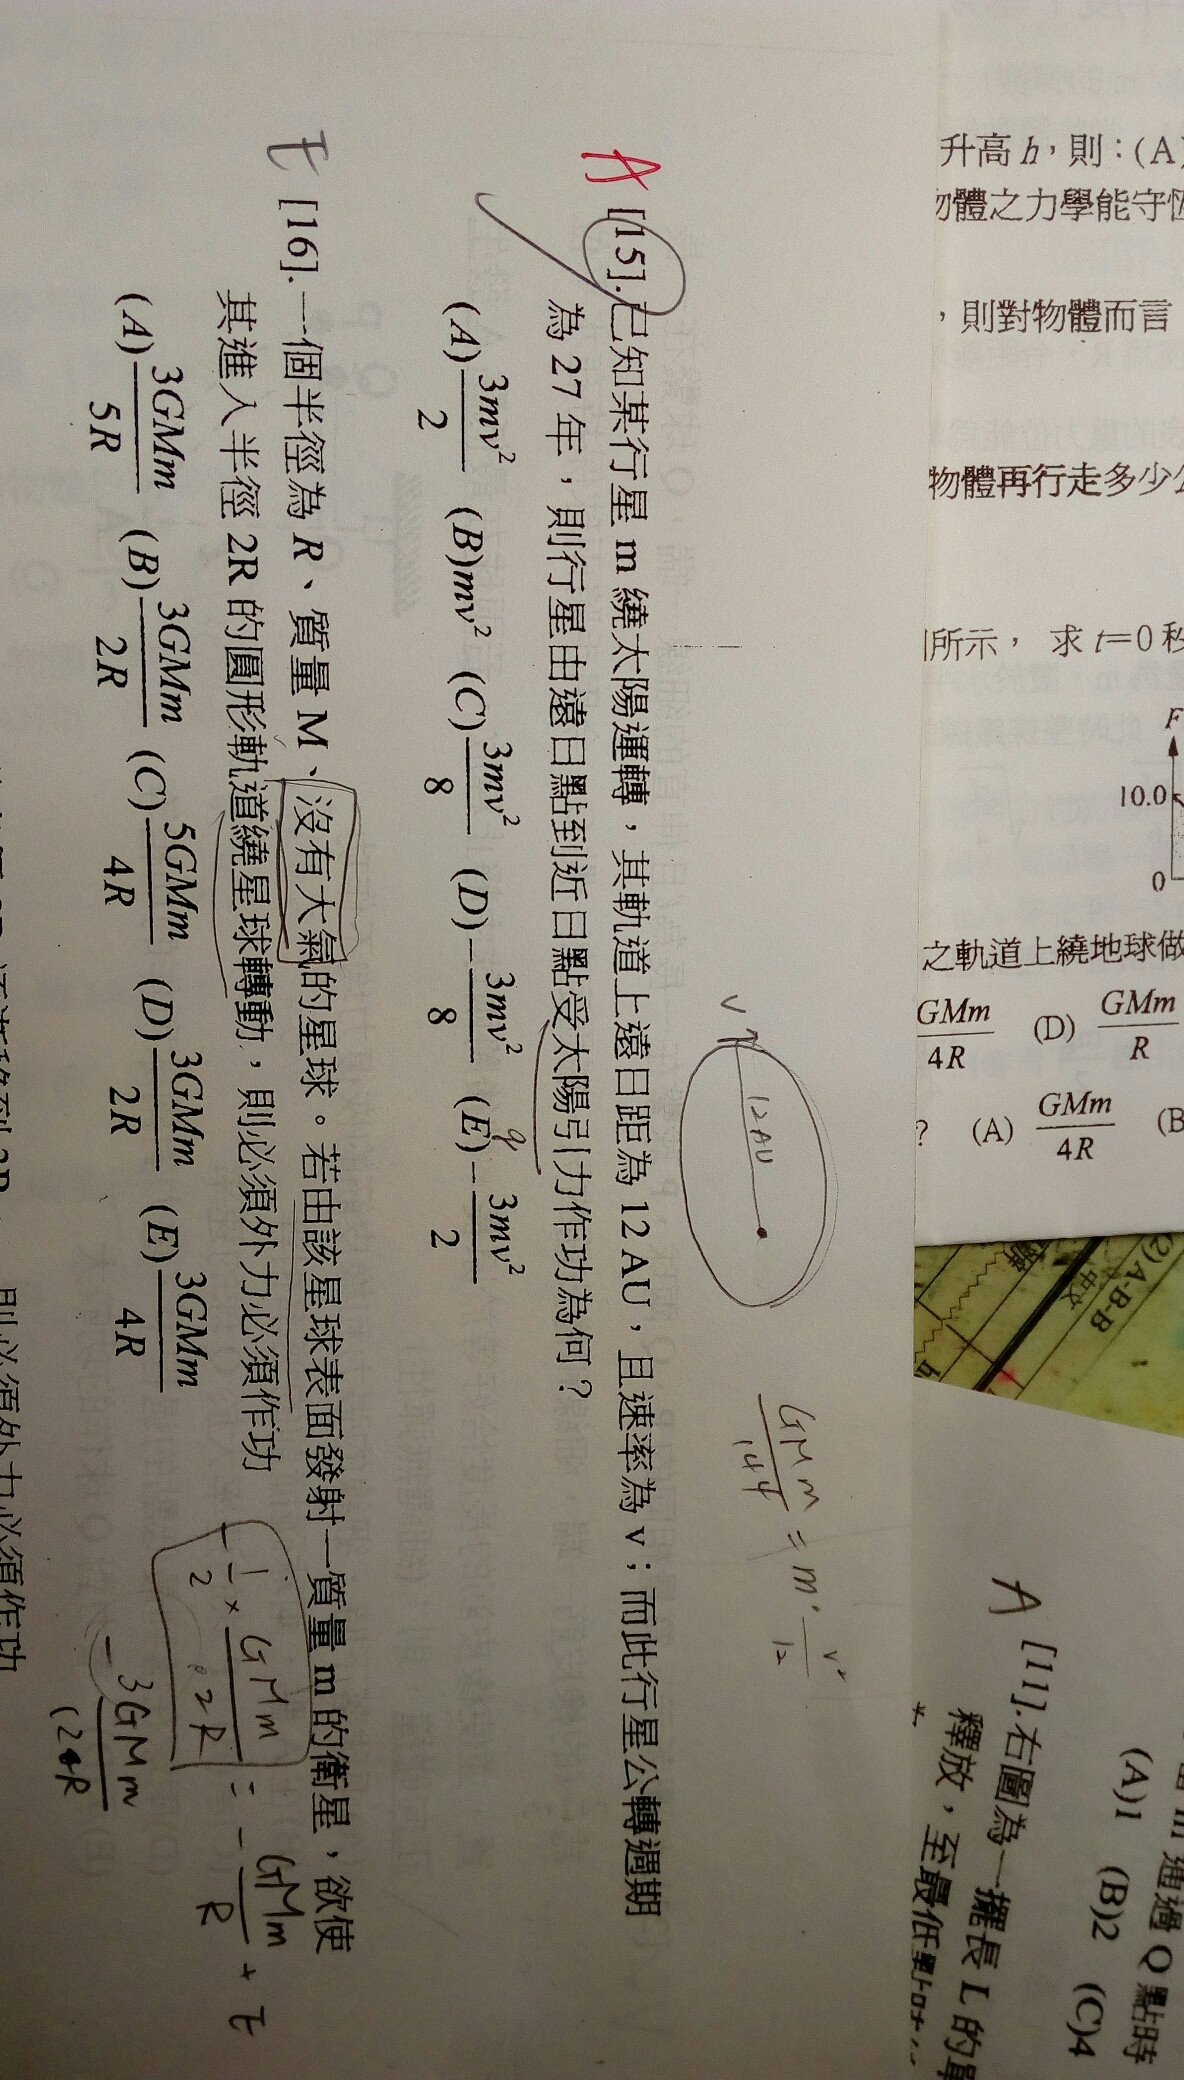 升高 h，則：(A)
物體之力學能守恆
，則對物體而言
物體再行走多少公
所示， 求 t=0 秒
F
10.0
0
之軌道上繞地球做
GMm/4R (D) GMm/R
? (A) GMm/4R (B
(2) A-B-B
中文
A [11].右圖為一擺長 L 的單
釋放，至最低點
通過 Q 點時
(A)1 (B)2 (C)4
v
12AU
GMm/144 = m · v²/12
A [15].已知某行星 m 繞太陽運轉，其軌道上遠日距為 12 AU，且速率為 v；而此行星公轉週期
為 27 年，則行星由遠日點到近日點受太陽引力作功為何？
(A) 3mv²/2 (B)mv² (C) 3mv²/8 (D) -3mv²/8 (E) -3mv²/2
E [16].一個半徑為 R、質量 M、沒有大氣的星球。若由該星球表面發射一質量 m 的衛星，欲使
其進入半徑 2R 的圓形軌道繞星球轉動，則必須外力必須作功
(A) 3GMm/5R (B) 3GMm/2R (C) 5GMm/4R (D) 3GMm/2R (E) 3GMm/4R
-1/2 × GMm/2R = -GMm/R + E
則必須外力必須作功